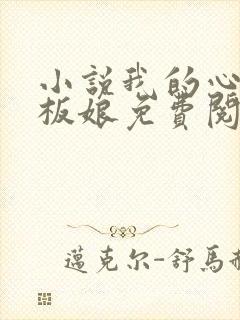 小説我的心
板娘免費閱
邁克尔-舒馬赫